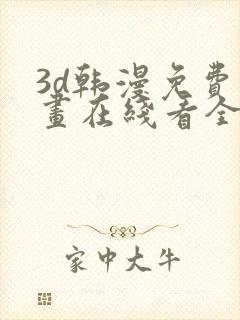 3d韩漫免费
畫在綫看全
家中大牛